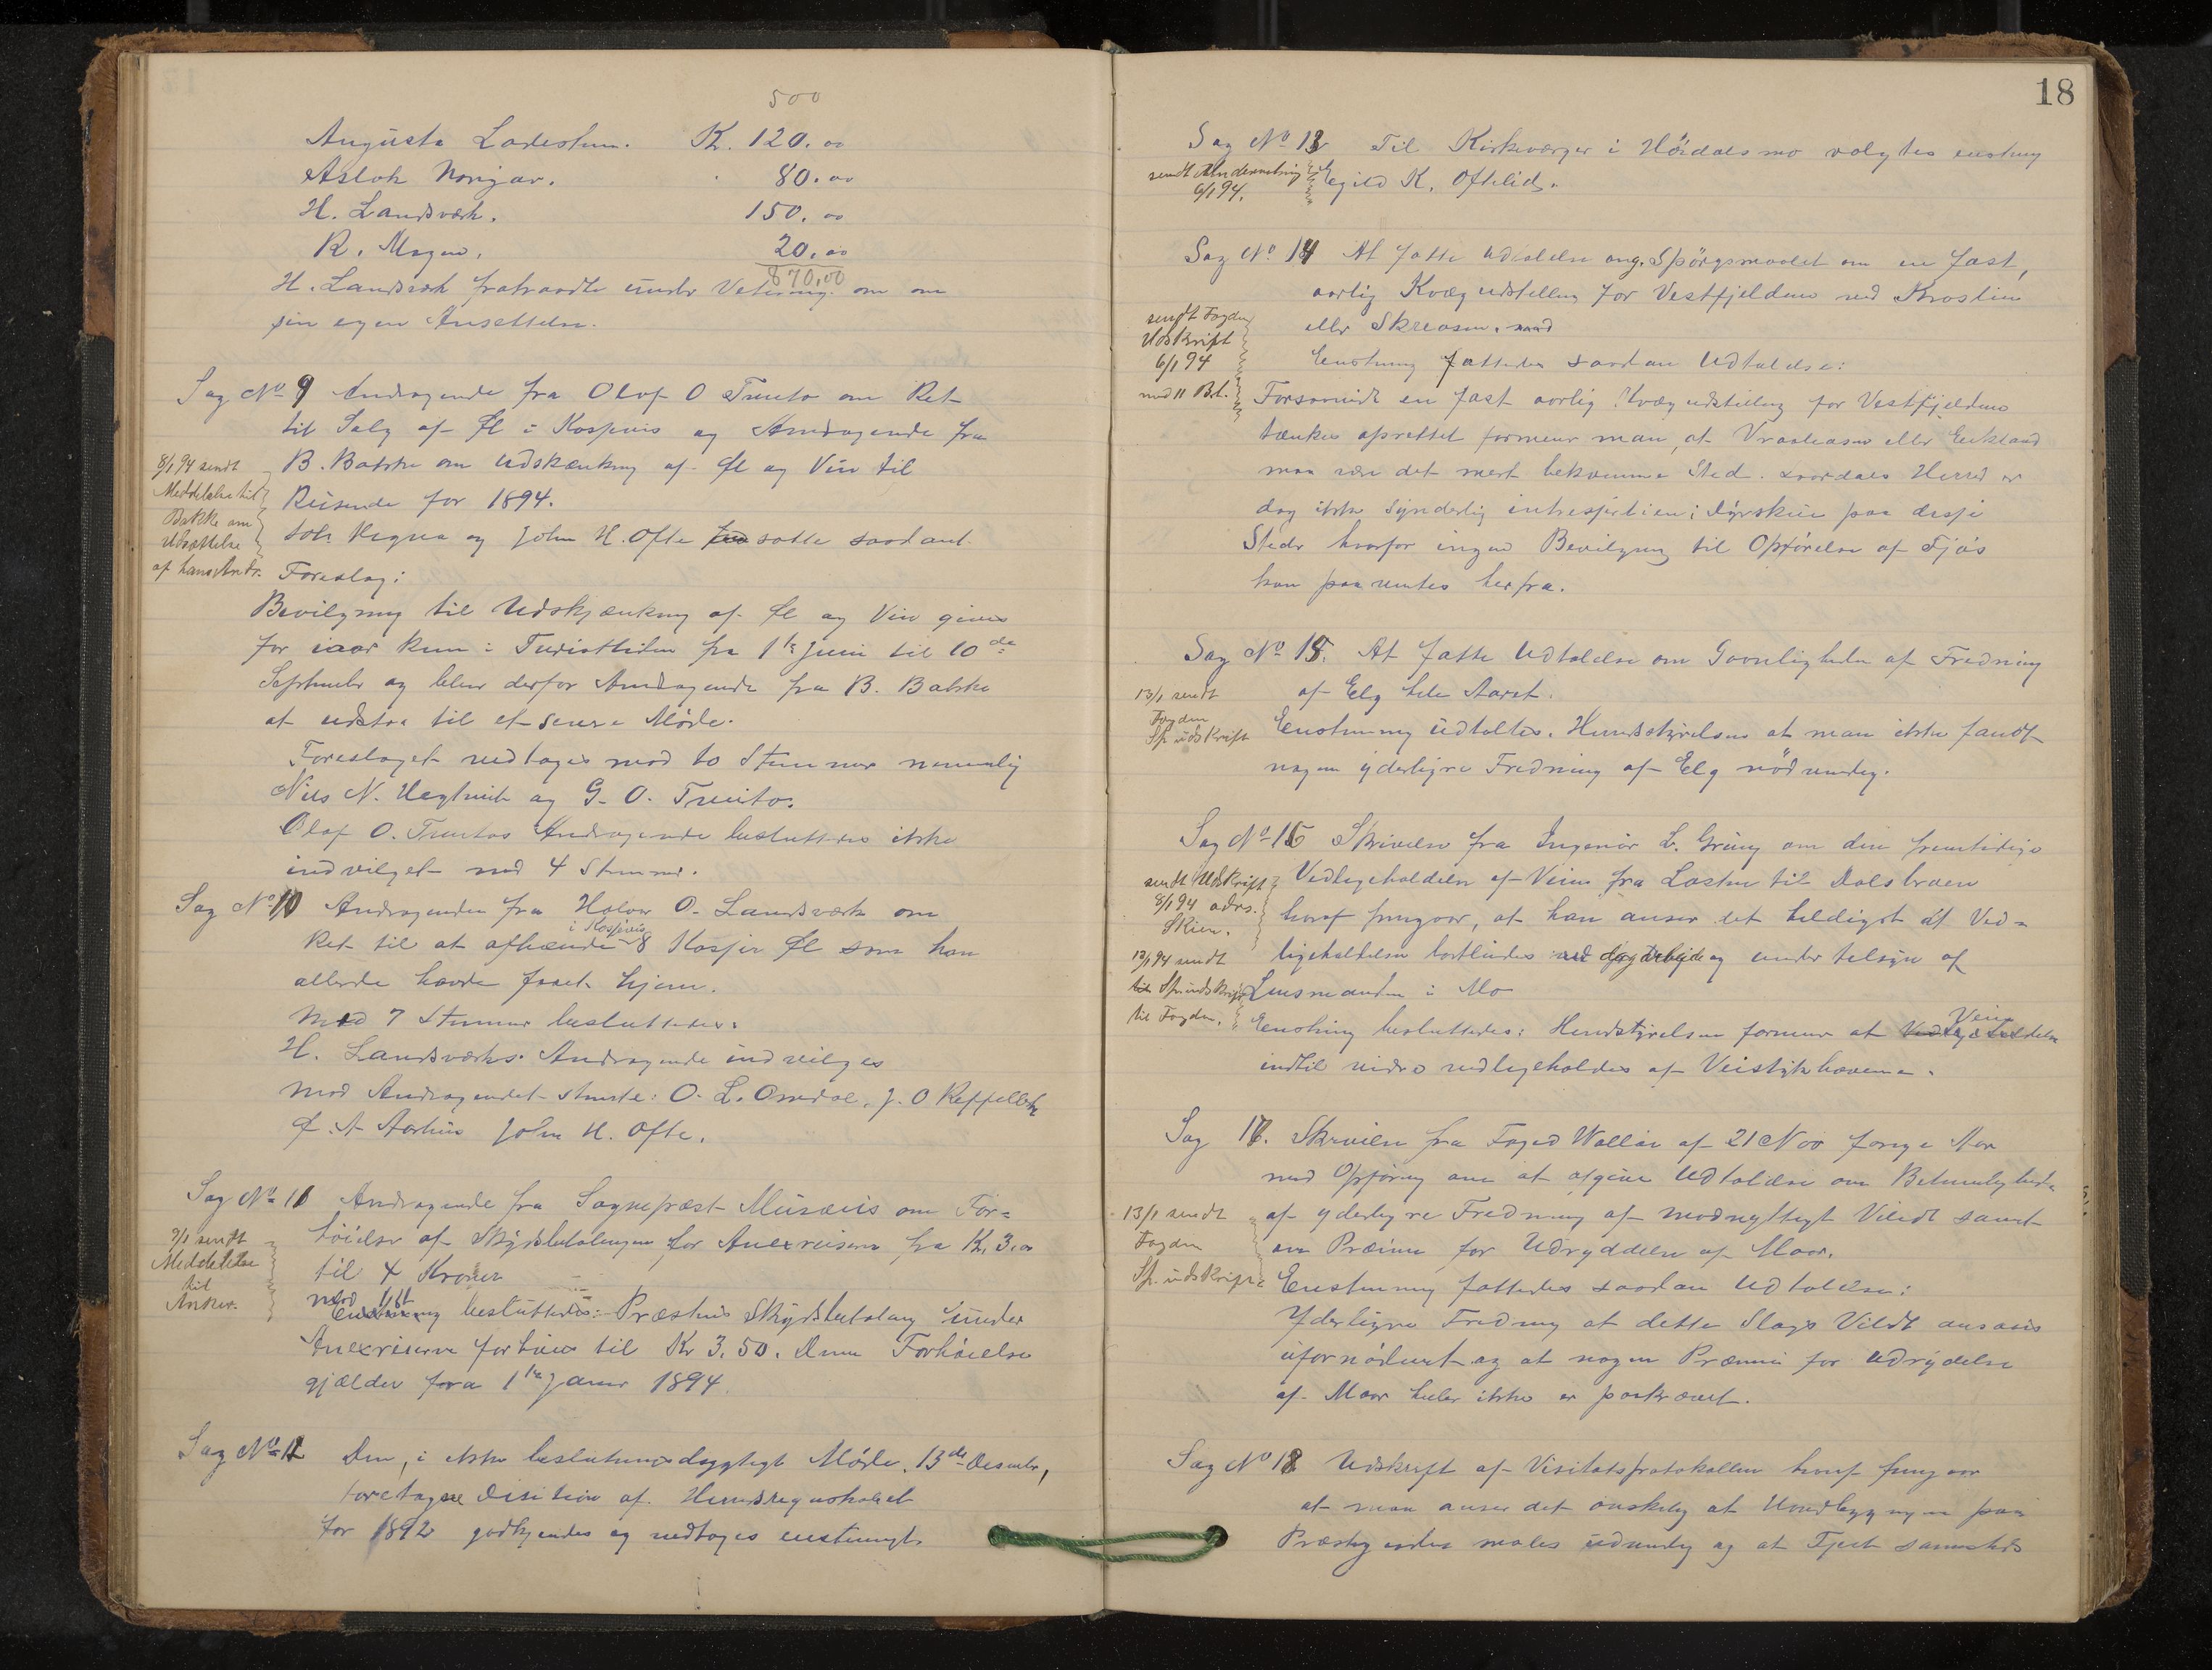 500
Augusta Ladestun. K. 120.00
Aslak Norigar. 80.00
H. Landsværk. 150.00
R. Mogen. 20.00
870,00
H. Landsværk fratraadte under Votering om
sin egen Ansettelse.
Sag No 9 Andragende fra Olaf O Tveito om Ret
til Salg af Øl i Kasser og Andragende fra
B. Bakke om Udskænkning af Øl og Vin til
Reisende for 1894.
8/1 94 sendt
Meddelelse til
Bakke om
Udsættelse
af hans Andr.
Vegna og John H. Ofte satte saadant
Foreslag:
Bevilgning til Udskjænkning af Øl og Vin gives
for iaar kun i Turisttiden fra 1ste Juni til 10de
September og blev derfor Andragende fra B. Bakke
at udstaa til et senere Møde.
Foreslaget vedtoges mod to Stemmer nemmelig
Nils N. og G. O. Tveito.
Olaf O. Tveitos Andragende besluttedes ikke
indvilget med 4 Stemmer.
Sag No 10 Andragende fra Halvor O. Landsværk om
i Kassevis
Ret til at afhænde 8 Kasser Øl som han
allerede havde faaet hjem.
Med 7 Stemmer besluttedes:
H. Landsværks Andragende indvilges
Mod Andragendet stemte: O. L. Omdal, J. O
A Aarhus John H. Ofte.
Sag No 11 Andragende fra Sognepræst Musæus om For=
høielse af Skydsbetalingen for Anexreiserne fra K. 3.00
til 4 Kroner
9/1 sendt
Meddelelse
til
Anker.
besluttedes: Præstens Skydsbetaling under
Anexreiserne forhøies til Kr 3.50. Denne Forhøielse
gjælder fra 1ste Januar 1894.
Sag No 12 Den, i ikke beslutningsdygtigt Møde, 13de Desember,
foretagne Desision af Herredsregnskabet
for 1892 godkjendes og vedtoges enstemmigt.
18
Sag No 13 Til Kirkeværger i Høidalsmo valgtes enstemmig
Eegild K. Oftelid.
sendt Underretning
6/1 94.
Sag No 14 At fatte Udtalelse ang. Spørgsmaalet om en fast,
aarlig Kvægudstilling for Vestfjeldene ved Kroslien
eller Skreosen.
sendt Fogden
Udskrift
6/1 94
med 11 Bl.
Enstemmig fattedes saadan Udtalelse:
Forsaavidt en fast aarlig Kvægudstilling for Vestfjeldene
tænkes oprettet formener man, at Vraaliosen eller Eeksand
maa være det mest bekvemme Sted. Laardals Herred er
dog ikke synderlig i Dyrskue paa disse
Steder hvorfor ingen Bevilgning til Opførelse af Fjøs
kan paaventes herfra.
Sag No 15. At fatte Udtalelse om Gavnligheden af Fredning
af Elg hele Aaret.
13/1 sendt
Fogden
Sp. udskrift
Enstemmig udtaltes. Herredsstyrelsen at man ikke fandt
nogen yderligere Fredning af Elg nødvendig.
Sag No 16 Skrivelse fra Ingeniør L. Grung om den fremtidige
Vedligeholdelse af Veien fra Lasten til Dalsbroen
hvoraf fremgaar, at han anser det heldigst at Ved=
ligeholdelsen bortlides ved dagarbeide og under tilsyn af
Lensmanden i Mo
sendt Udskrift
8/1 94 adrs.
Skien.
13/1 94 sendt
Sp. udskrift
til Fogden.
Enstemmig besluttedes: Herredstyrelsen formener at Veien
indtil videre vedligeholdes af Veistykhaverne.
Sag 17. Skrivelse fra Foged Wallöe af 21 Nov forrige Aar
med Opfordring om at afgive Udtalelse om Betimeligheden
af yderligere Fredning af modnyttigt Vildt samt
om Præmie for Udryddelse af Maar.
13/1 sendt
Fogden
Sp. udskrift
Enstemmig fattedes saadan Udtalelse:
Yderligere Fredning af dette Slags Vildt ansaaes
ufornødent og at nogen Præmie for Udrydelse
af Maar heller ikke er paakrævet.
Sag No 18 Udskrift af Visitatsprotokollen hvoraf fremgaar
at man anser det ønskelig at Hovedbygningen paa
Præstegaarden males udvendig og at Fjert sammesteds